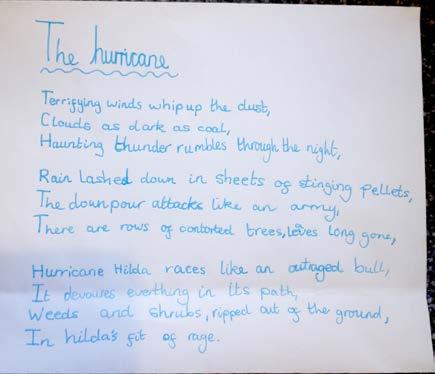 The hurricane
Terrifying winds whip up the dust,
Clouds as dark as coal,
Haunting thunder rumbles through the night,
Rain Lashed down in sheets of stinging pellets,
The downpour attacks like an army,
There are rows of contorted trees, leves long gone,
Hurricane Hilda races like an outraged bull,
It devoures everthing in its path,
Weeds and shrubs, ripped out of the ground,
In hilda's fit of rage.